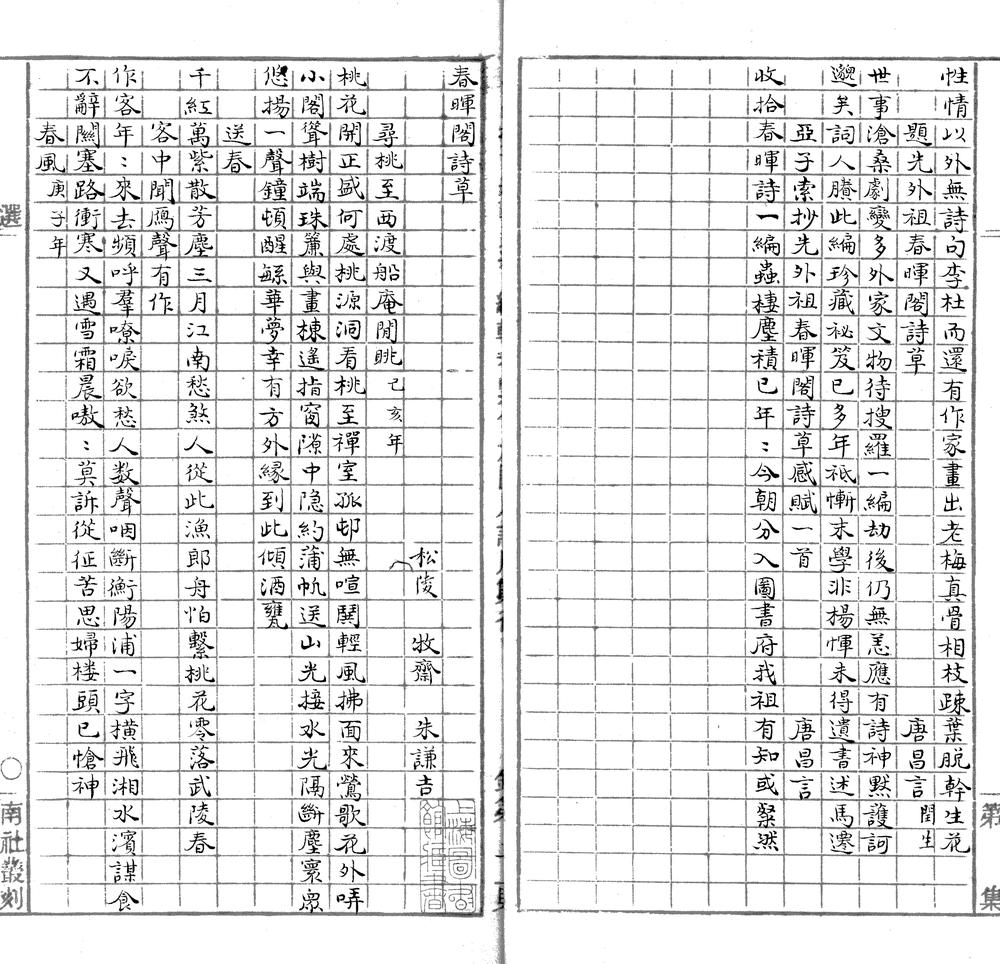 第　集
性情以外無詩句李杜而還有作家畫出老梅真骨相枝疎葉脫幹生花
題光外祖春暉閣詩草　唐昌言閏生
世事滄桑劇變多外家文物待搜羅一編劫後仍無恙應有詩神默護訶
邈矣詞人賸此編珍藏祕笈已多年祗慚末學非揚惲未得遺書述馬遷
亞子索抄先外祖春暉閣詩草感賦一首　唐昌言
收拾春暉詩一編蟲棲塵積已年：今朝分入圖書府我祖有知或粲然
春暉閣詩草
松陵　牧齋　朱謙吉
尋桃至西渡船庵閒眺己亥年
桃花開正盛何處桃源洞看桃至禪室孤邨無喧鬨輕風拂面來鶯歌花外哢
小閣聳樹端珠簾與畫棟遙指窗隙中隐約蒲帆送山光接水光隔斷塵寰眾
悠揚一聲鐘頓醒鯀華夢幸有方外緣到此傾酒甕
送春
千紅萬紫散芳塵三月江南愁煞人從此漁郎舟怕繫桃花零落武陵春
客中聞鴈聲有作
作客年：來去頻呼羣嘹唳欲愁人数聲咽斷衡陽浦一字橫飛湘水濱謀食
不辭關塞路衝寒又遇雪霜晨嗷：莫訴從征苦思婦楼頭已愴神
春風庚子年
選　〇　南社叢刻